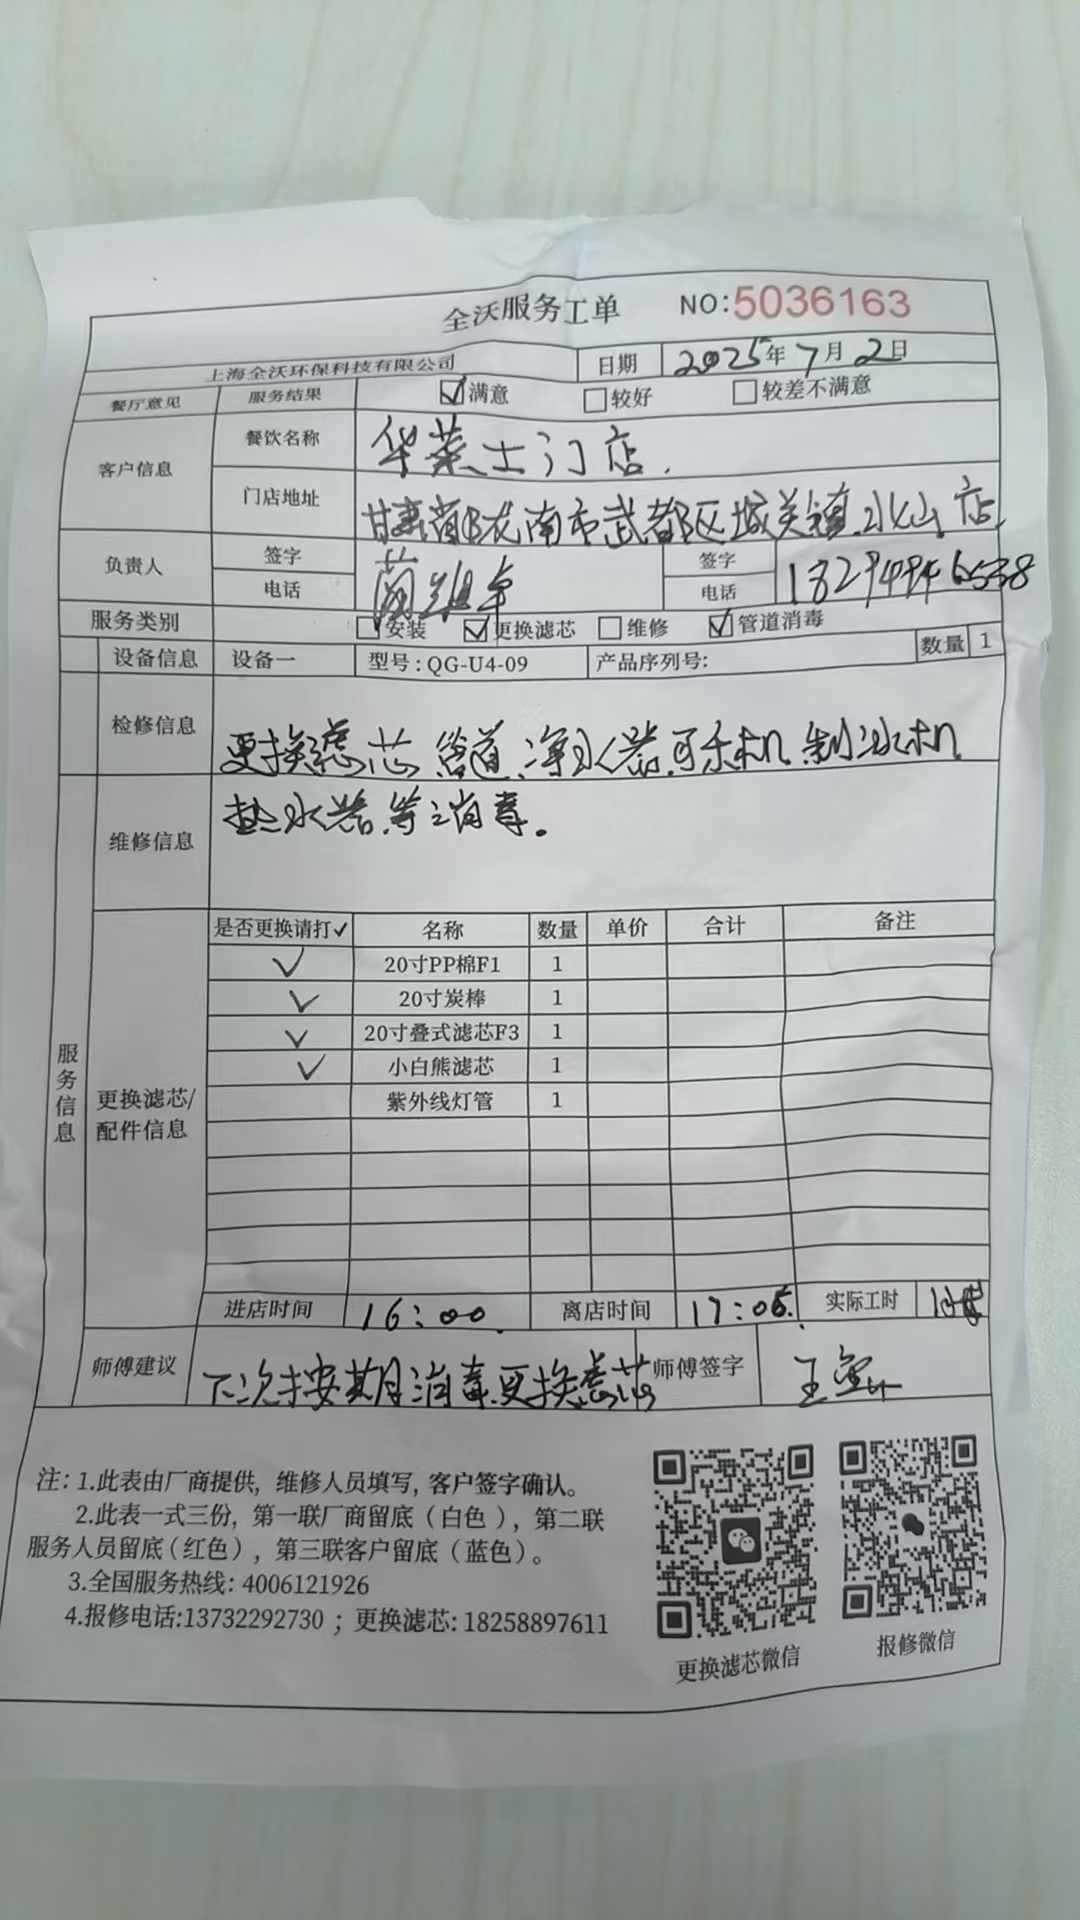 全沃服务工单 NO:5036163
上海全沃环保科技有限公司 日期 2025年7月2日
餐厅意见 服务结果 ☑满意 □较好 □较差不满意
客户信息 餐饮名称 华莱士门店.
门店地址 甘肃省陇南市武都区城关镇 火山店
负责人 签字 签字
电话 电话
服务类别 □安装 ☑更换滤芯 □维修 ☑管道消毒
设备信息 设备一 型号:QG-U4-09 产品序列号: 数量 1
检修信息 更换滤芯.管道、净水器.可乐机.制冰机
维修信息 热水器.等消毒。
服务信息
更换滤芯/配件信息
是否更换请打✓ 名称 数量 单价 合计 备注
✓ 20寸PP棉F1 1
✓ 20寸炭棒 1
✓ 20寸叠式滤芯F3 1
✓ 小白熊滤芯 1
紫外线灯管 1
进店时间 16:00 离店时间 17:05. 实际工时
师傅建议 下次按期消毒.更换滤芯 师傅签字 王
注: 1.此表由厂商提供, 维修人员填写, 客户签字确认。
2.此表一式三份, 第一联厂商留底(白色), 第二联
服务人员留底(红色), 第三联客户留底(蓝色)。
3.全国服务热线: 4006121926
4.报修电话:13732292730 ; 更换滤芯: 18258897611
更换滤芯微信 报修微信